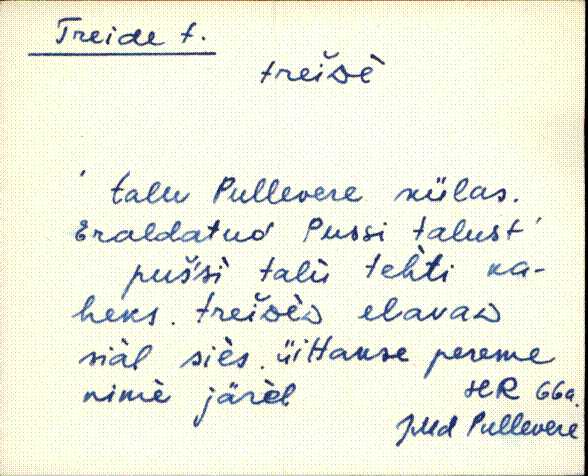 Treide t.
treiᴅè
' talu Pullevere külas.
Eraldatud Pussi talust'
pušśi talù tehti ka-
heks. treiᴅèᴅ elavaᴅ
siäl siès. üittakse pereme
nimè järèl
HR 66a.
JMd Pullevere